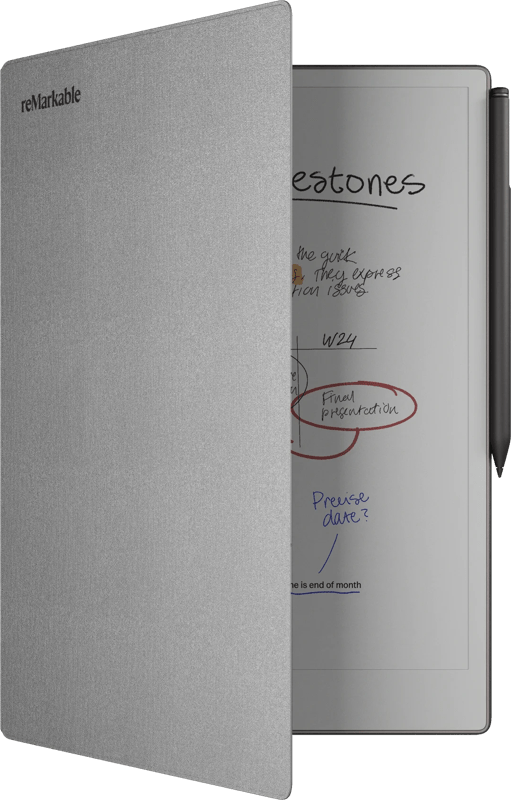 reMarkable
estones
the quick
. They express
tion issues
W24
Final
presentation
Precise
date?
ne is end of month